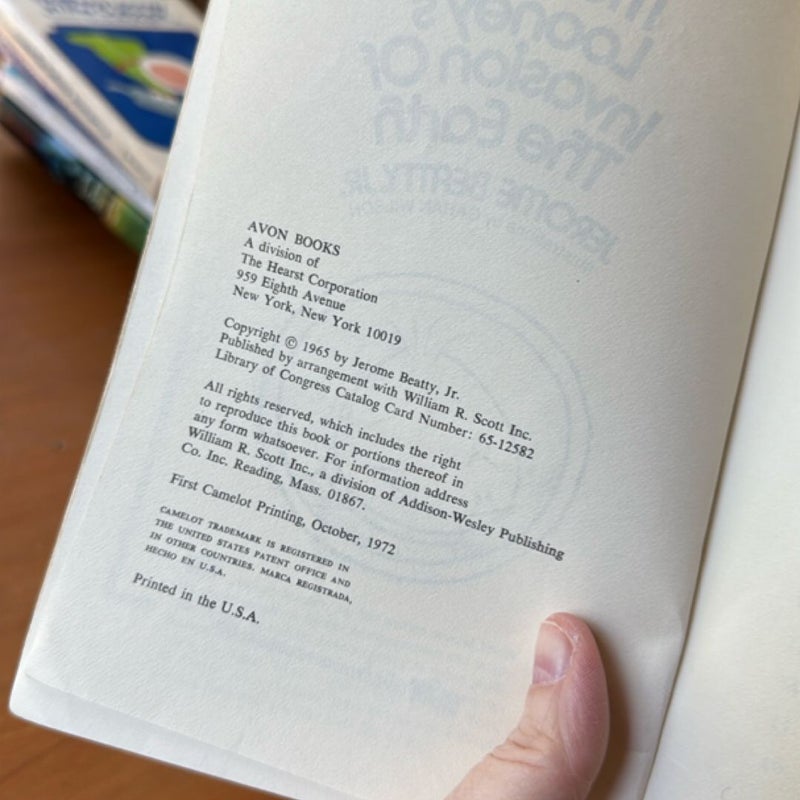 Looney's
Invasion Of
The Earth
JEROME BEATTY, JR.
AVON BOOKS
A division of
The Hearst Corporation
959 Eighth Avenue
New York, New York 10019
Copyright © 1965 by Jerome Beatty, Jr.
Published by arrangement with William R. Scott Inc.
Library of Congress Catalog Card Number: 65-12582
All rights reserved, which includes the right
to reproduce this book or portions thereof in
any form whatsoever. For information address
William R. Scott Inc., a division of Addison-Wesley Publishing
Co. Inc. Reading, Mass. 01867.
First Camelot Printing, October, 1972
CAMELOT TRADEMARK IS REGISTERED IN
THE UNITED STATES PATENT OFFICE AND
IN OTHER COUNTRIES. MARCA REGISTRADA,
HECHO EN U.S.A.
Printed in the U.S.A.